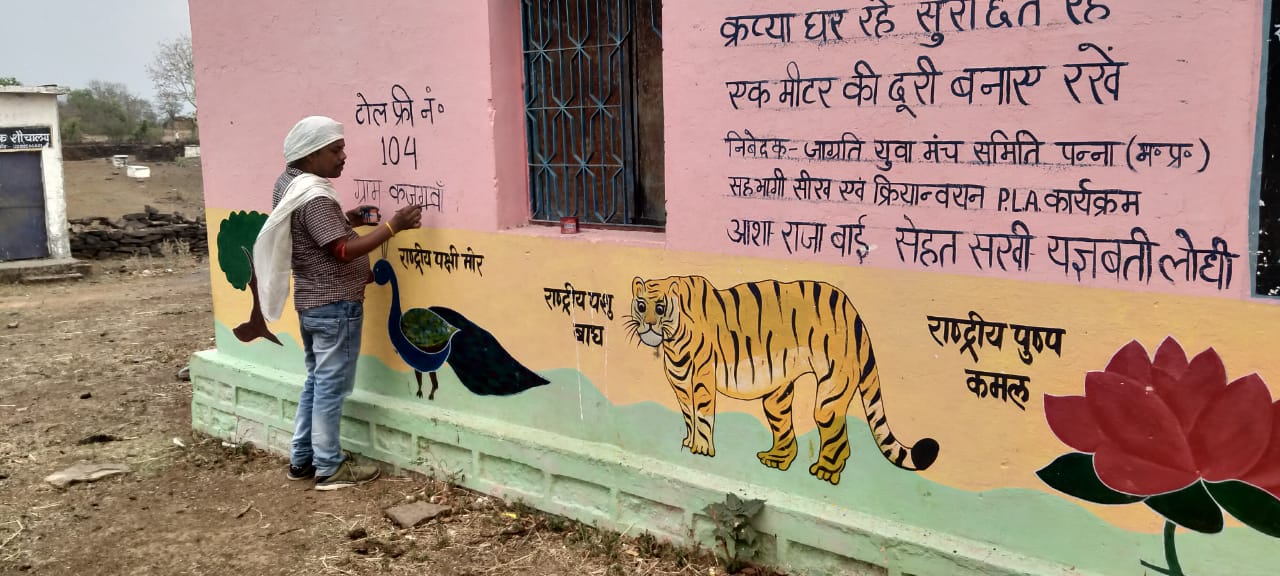 क शौचालय
टोल फ्री नं॰
104
ग्राम कजगवाँ
राष्ट्रीय पक्षी मोर
राष्ट्रीय पशु
बाघ
कृप्या घर रहे सुरक्षित रहे
एक मीटर की दूरी बनाए रखें
निबेदक- जाग्रति युवा मंच समिति पन्ना (म॰प्र॰)
सहभागी सीख एवं क्रियान्वयन P.L.A. कार्यक्रम
आशा राजा बाई सेहत सखी यज्ञबती लोधी
राष्ट्रीय पुष्प
कमल